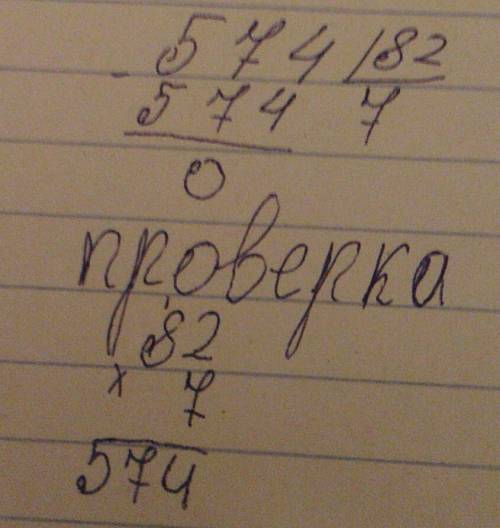 574 | 82
- 574 7
0
проверка
82
x 7
574